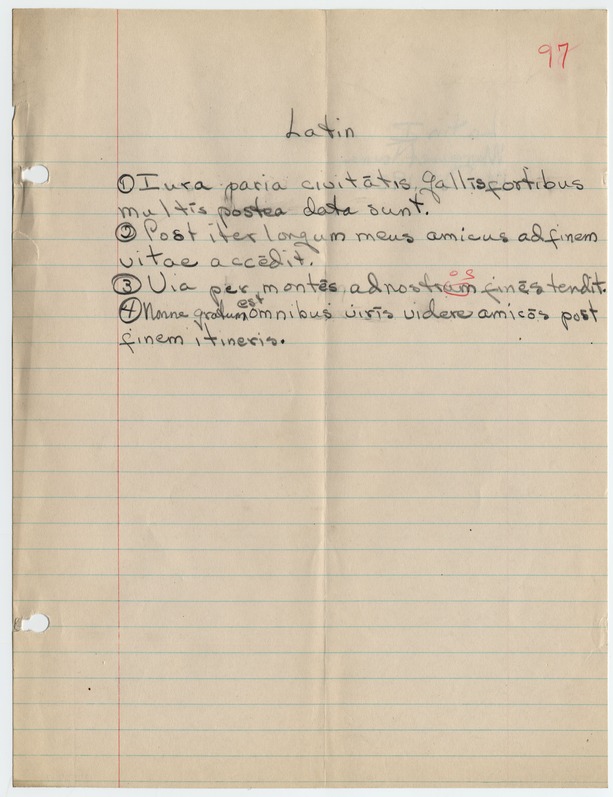 97
Latin
① Iura paria civitātis Gallīs fortibus
multīs postea data sunt.
② Post iter longum meus amicus ad finem
vitae accēdit.
os
③ Via per montēs ad nostrum finēs tendit.
est
④ Nonne gratum omnibus virīs videre amicōs post
finem itineris.